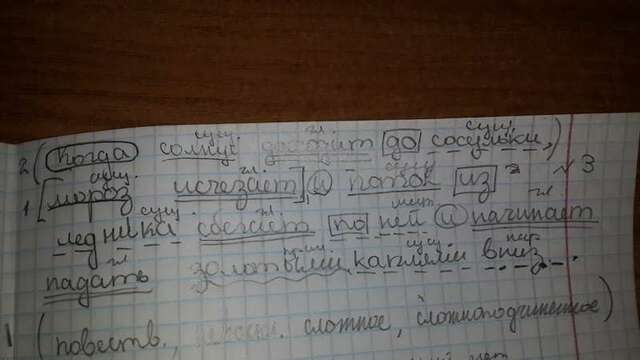 сущ. гл. сущ.
2 (Когда солнце доходит до сосульки,)
сущ. гл. сущ. 3
1 [мороз исчезает], и поток из
сущ. гл. мест. гл
ледника сбегает по ней и начинает
гл сущ. нар.
падать золотыми каплями вниз.
1 (повеств., сложное, сложноподчиненное)